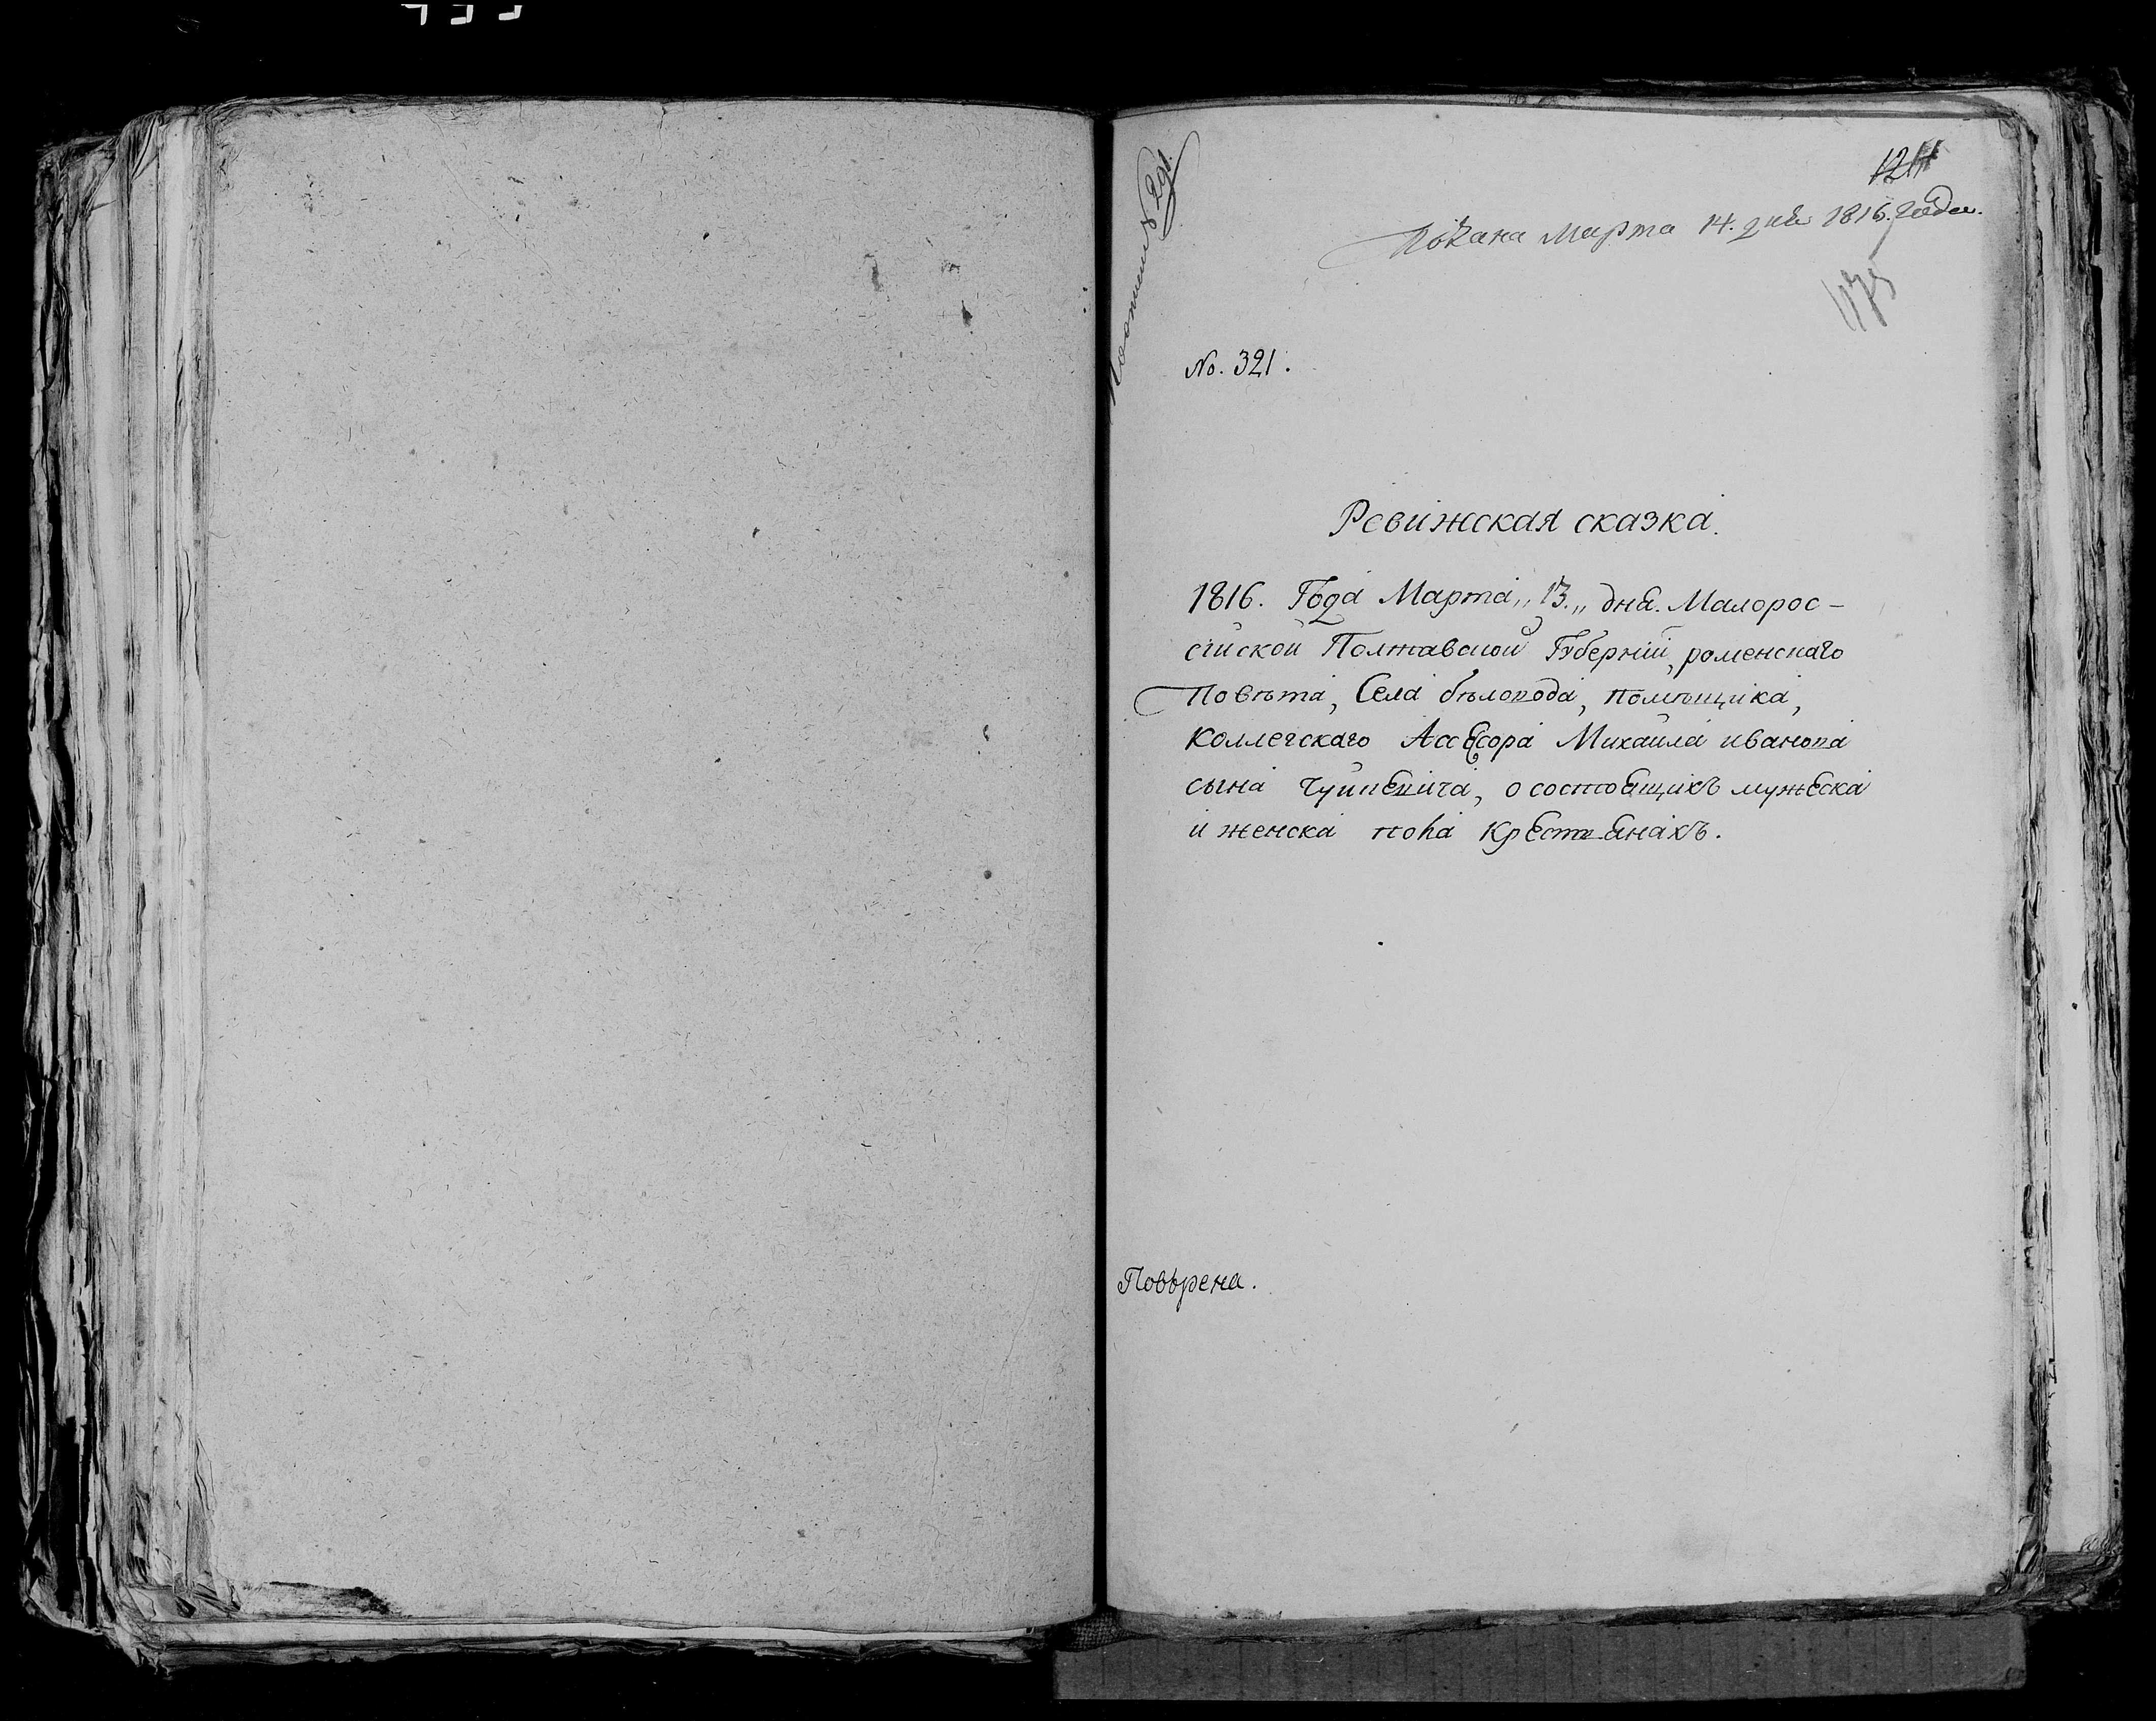 1211
Подана Марта 14. дня 1816. года.
175
No. 321.
Ревижская сказка.
1816. Года Марта „13.„ дня. Малорос-
сійской Полтавской Губерніи, роменскаго
Повѣта, Села бѣловода, помѣщика,
Коллегскаго Ассесора Михайла иванова
сына Чуйкевича, о состоящихъ мужеска
и женска пола Крестьянахъ.
Повѣрена.